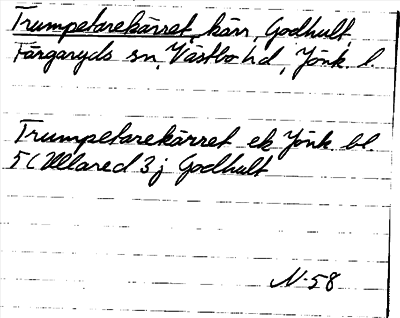 Trumpetarekärret, kärr, Godhult,
Färgaryds sn, Västbo hd, Jönk. l.
Trumpetarekärret ek Jönk. bl.
5 (Ullared 3 j Godhult
N-58